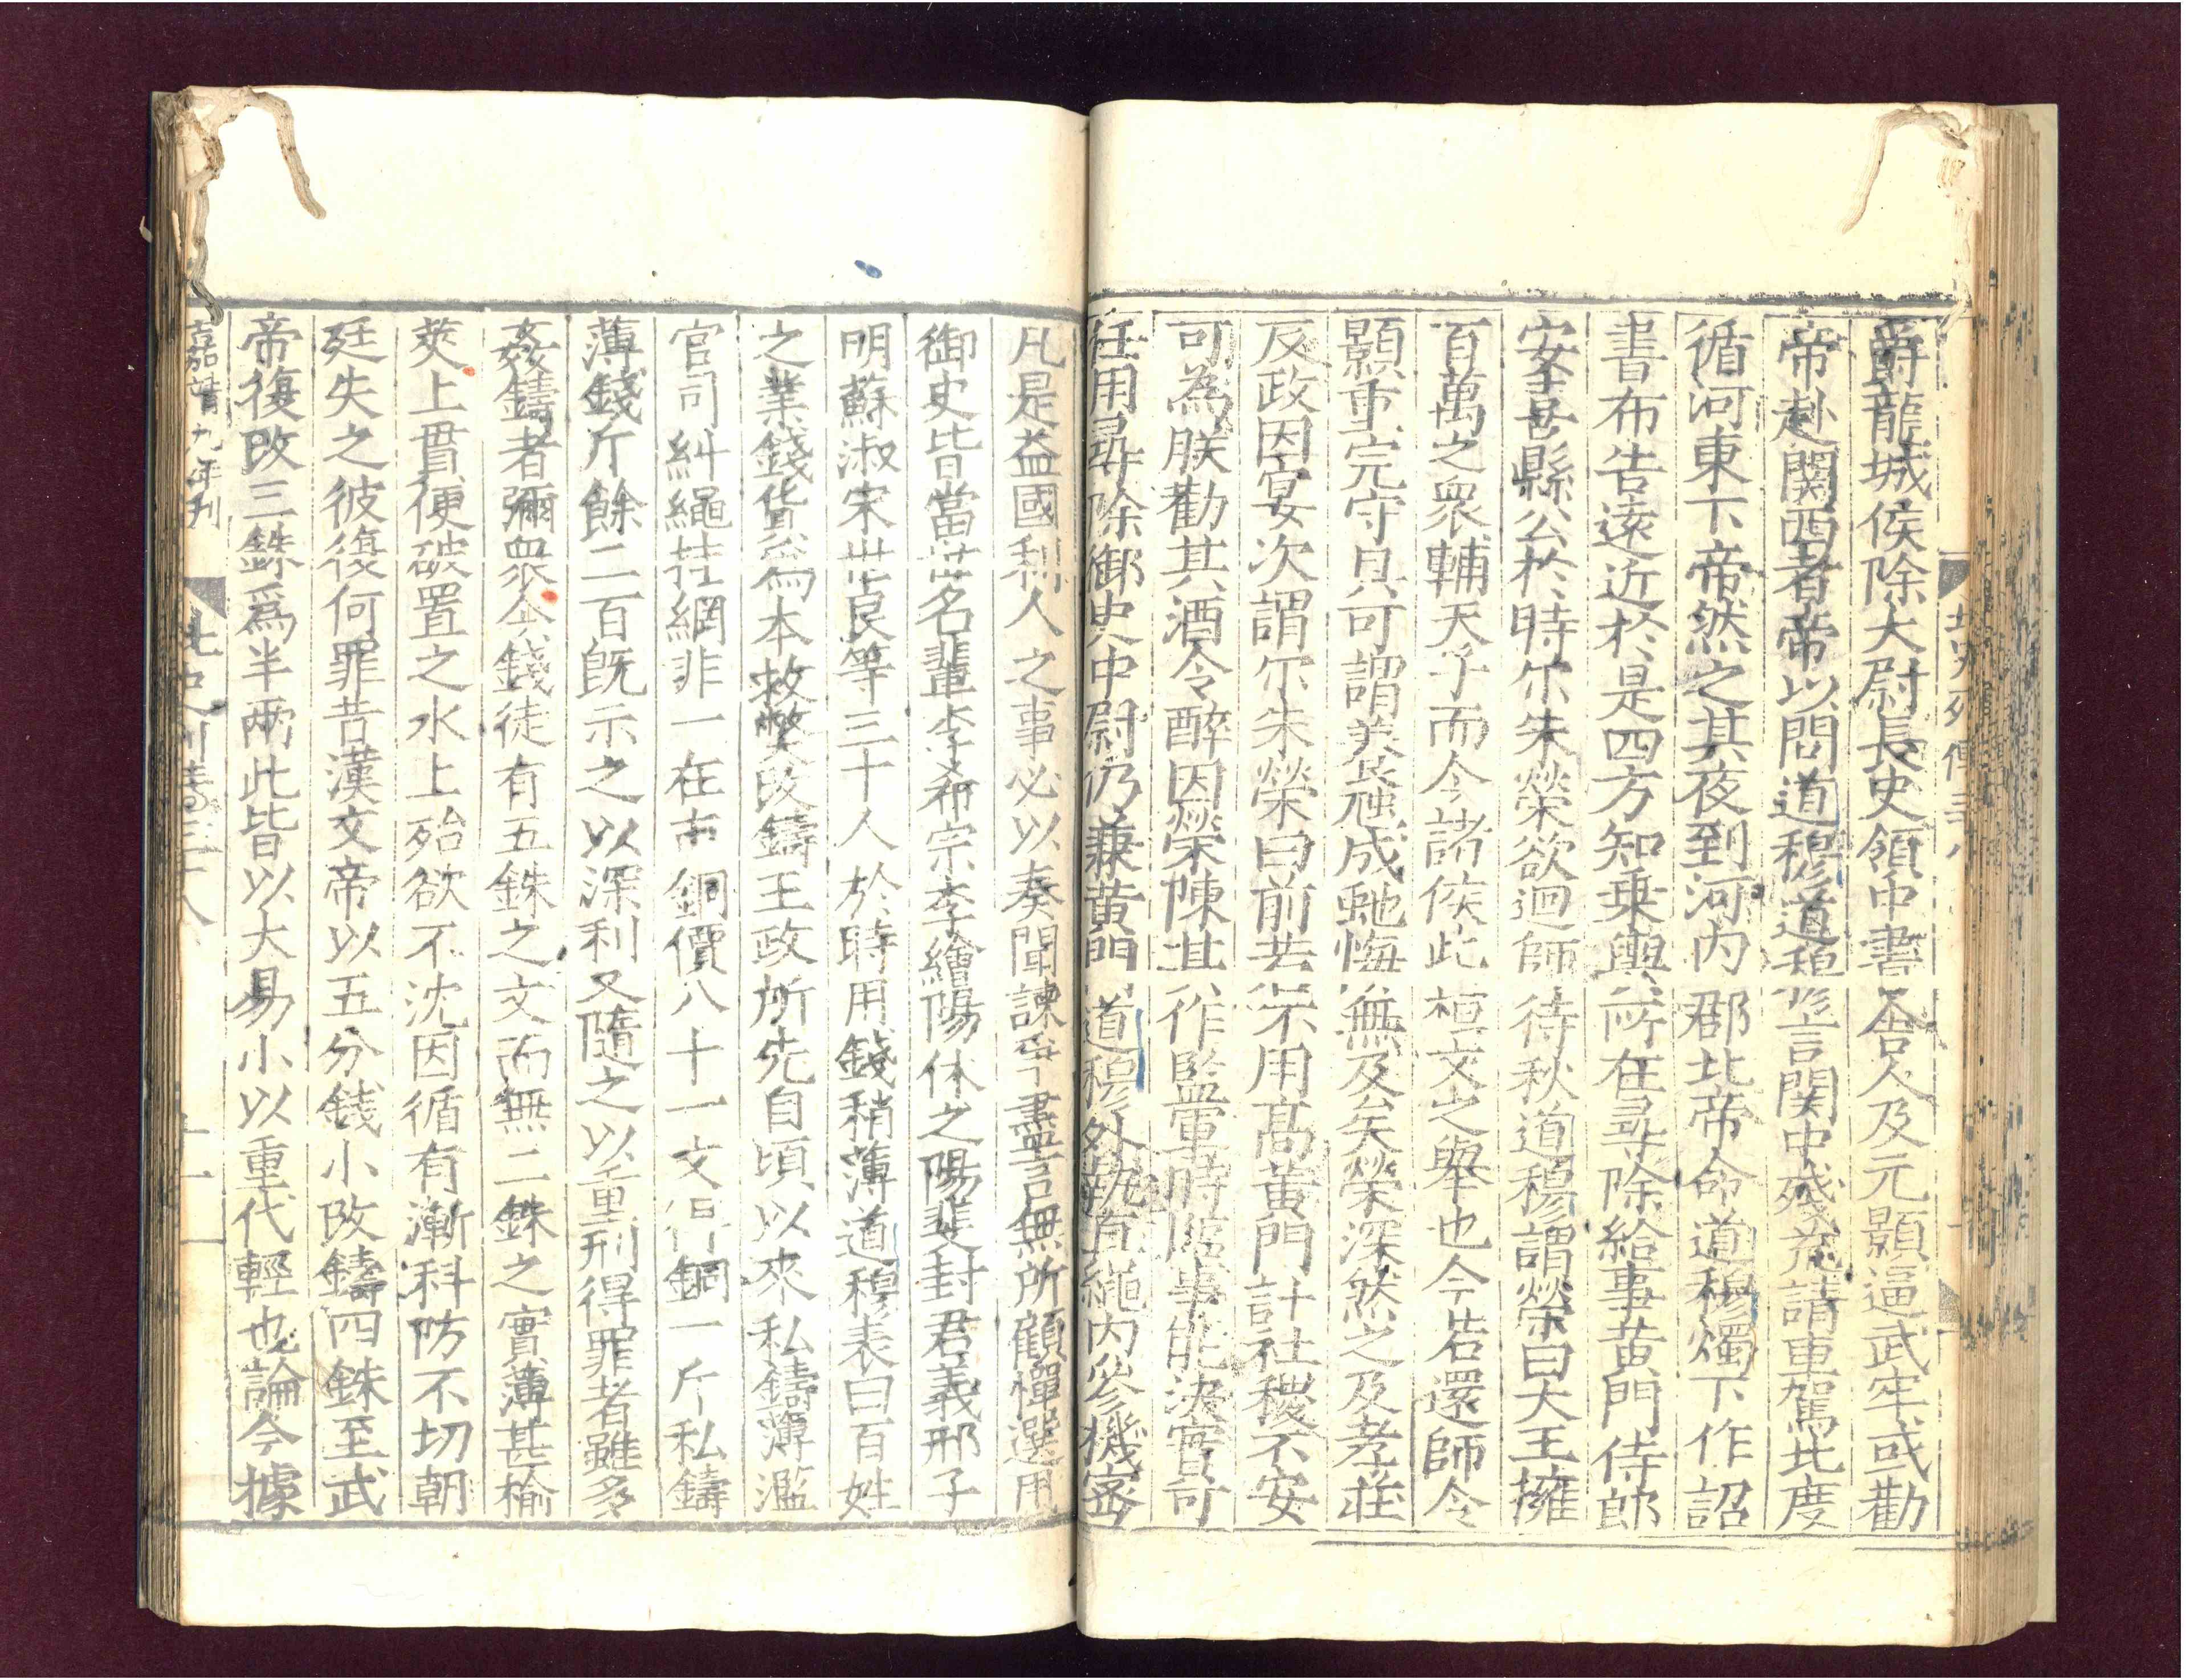 爵龍城侯除大尉長史領中書舍人及元顥逼武牢或勸
帝赴関西者帝以問道穆道穆言関中殘荒請車駕北度
循河東下帝然之其夜到河內郡北帝命道穆燭下作詔
書布告遠近於是四方知乗輿所在尋除給事黄門侍郎
安喜縣公於時尒朱榮欲迴師待秋道穆謂榮曰大王擁
百萬之衆輔天子而令諸侯此桓文之舉也今若還師令
顥重完守具可謂養虺成虵悔無及矣榮深然之及孝莊
反政因宴次謂尒朱榮曰前若不用髙黄門計社稷不安
可為朕勸其酒令醉因榮陳其作監軍時臨事能決實可
任用尋除御史中尉仍兼黄門道穆外執直繩内參機宻
凡是益國利人之事必以奏聞諫爭盡言無所顧憚選用
御史皆當丗名輩李希宗李繪陽休之陽斐封君義邢子
明蘇淑宋丗良等三十人於時用錢稍薄道穆表曰百姓
之業錢貨爲本救弊改鑄王政所先自頃以來私鑄薄濫
官司糾繩挂網非一在市銅價八十一文得銅一斤私鑄
薄錢斤餘二百旣示之以深利又隨之以重刑得罪者雖多
姦鑄者彌衆今錢徒有五銖之文而無二銖之實薄甚榆
莢上貫便破置之水上殆欲不沈因循有漸科防不切朝
廷失之彼復何罪昔漢文帝以五分錢小改鑄四銖至武
帝復改三銖爲半兩此皆以大易小以重代輕也論今據
嘉靖九年刊
北史列傳三十八